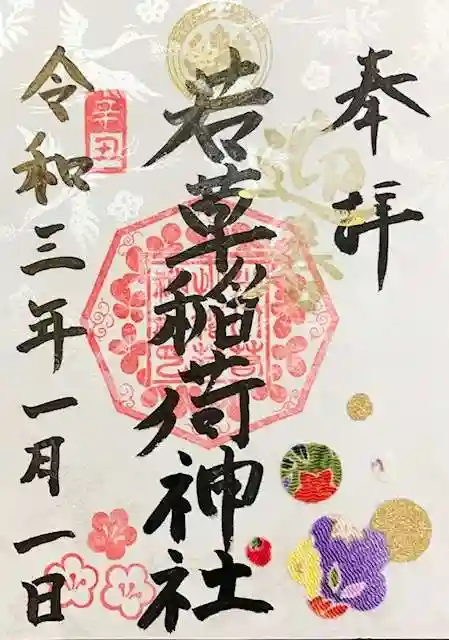 奉拝
若草稲荷神社
令和三年一月一日
辛丑
迎春